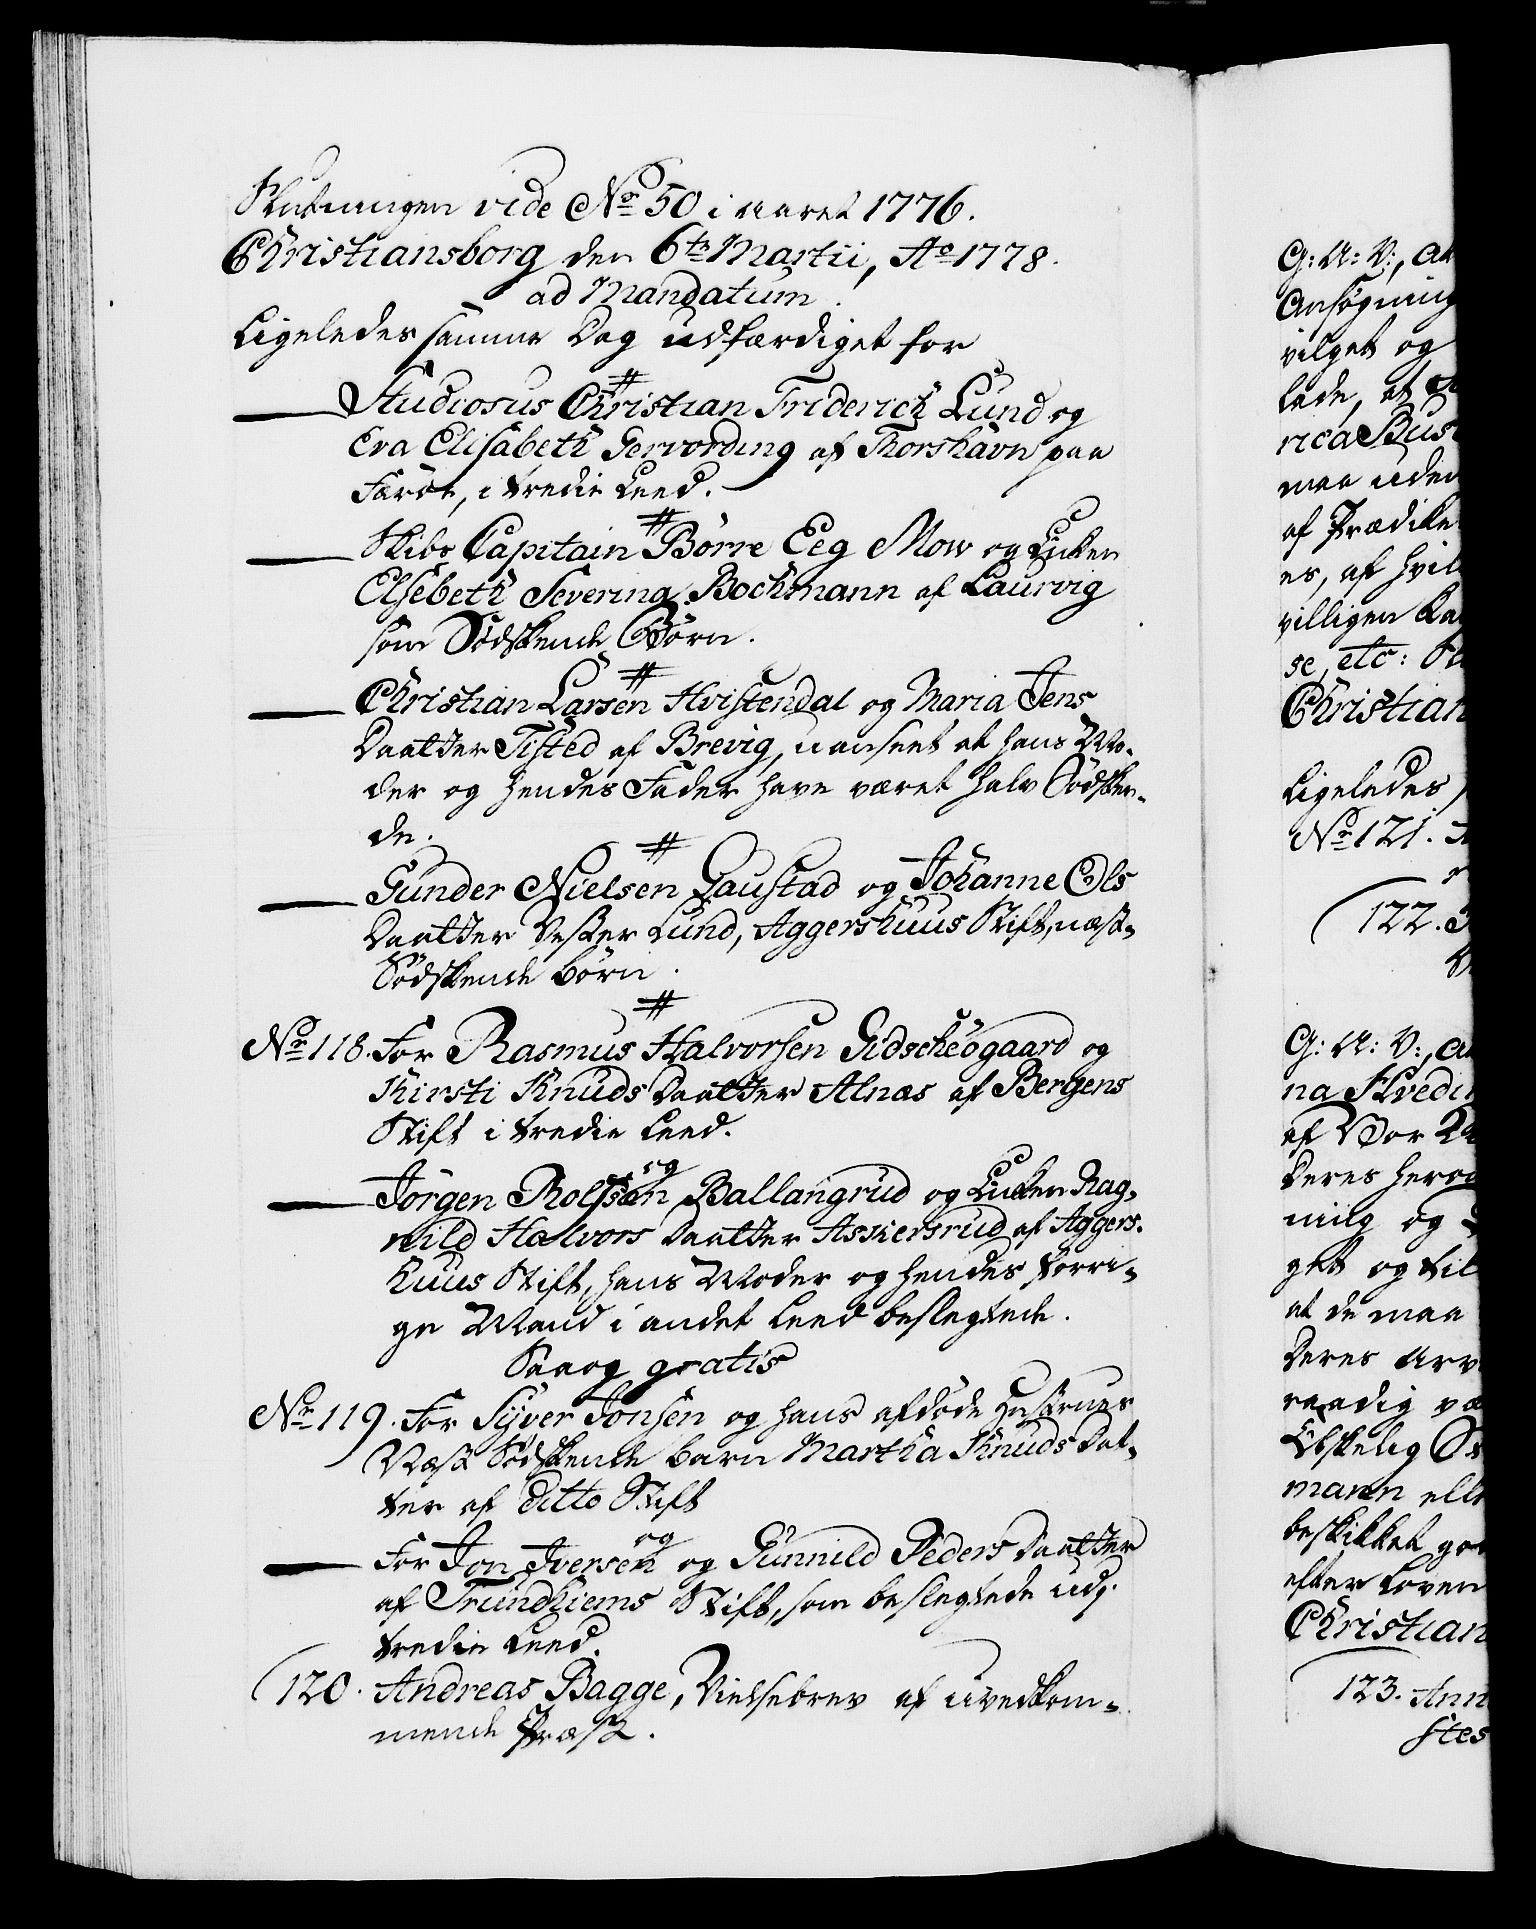 Slutningen vide No 50 i aaret 1776.
Christiansborg den 6te Martii, Ao 1778.
ad Mandatum.
Ligeledes samme Dag udfærdiget for
#
— Studiosus Christian Friderich Lund og
Eva Elisabeth Gervording af Thorshavn paa
Færøe, i tredie Leed.
#
— Skibs Capitain Börre Eeg Mow og Enken
Elsebeth Severina Bochmann af Laurvig
som Södskende Börn.
#
— Christian Larsen Hvistendal og Maria Jens
Daatter Tisted af Brevig, uanseet at hans Mo-
der og hendes Fader have været halv Södsken-
de.
#
— Gunder Nielsen Gaustad og Johanne Ols
Daatter Vesker Lund, Aggershuus Stift, næst-
Södskende börn.
#
No 118. For Rasmus Halvorsen Gidscheögaard og
Kirsti Knuds Daatter Alnæs af Bergens
Stift i tredie Leed.
og
— Jörgen Rolfsen Ballangrud og Enken Rag-
nild Halvors Daatter Askersrud af Aggers-
huus Stift, hans Moder og hendes forri-
ge Mand i andet Leed beslegtede.
Saaog gratis
No 119. For Syver Jonsen og hans afdöde Hustrues
Næst Södskende barn Martha Knuds Dat-
ter af ditto Stift
og
— For Jon Iversen og Gunnild Peders Daatter
af Trundhiems Stift, som beslegtede udj
tredie Leed.
120. Andreas Bagge, Vielsebrev af uvedkom-
mende Præst.
G: A: V:, A
Ansøgning
vilget og
lade, at
rica Bus
maa uden
af Prædike
es, af hvil
villigen Ka
se, etc:
Christian
Ligeledes
No 121.
122.
G: A: V:,
na Hvedi
af Vor
Deres herv
ning og
get og til
at de maa
Deres Arv
raadig væ
Ebskelig
mann elle
beskikket go
efter Loven
Christian
123. Ann
stes